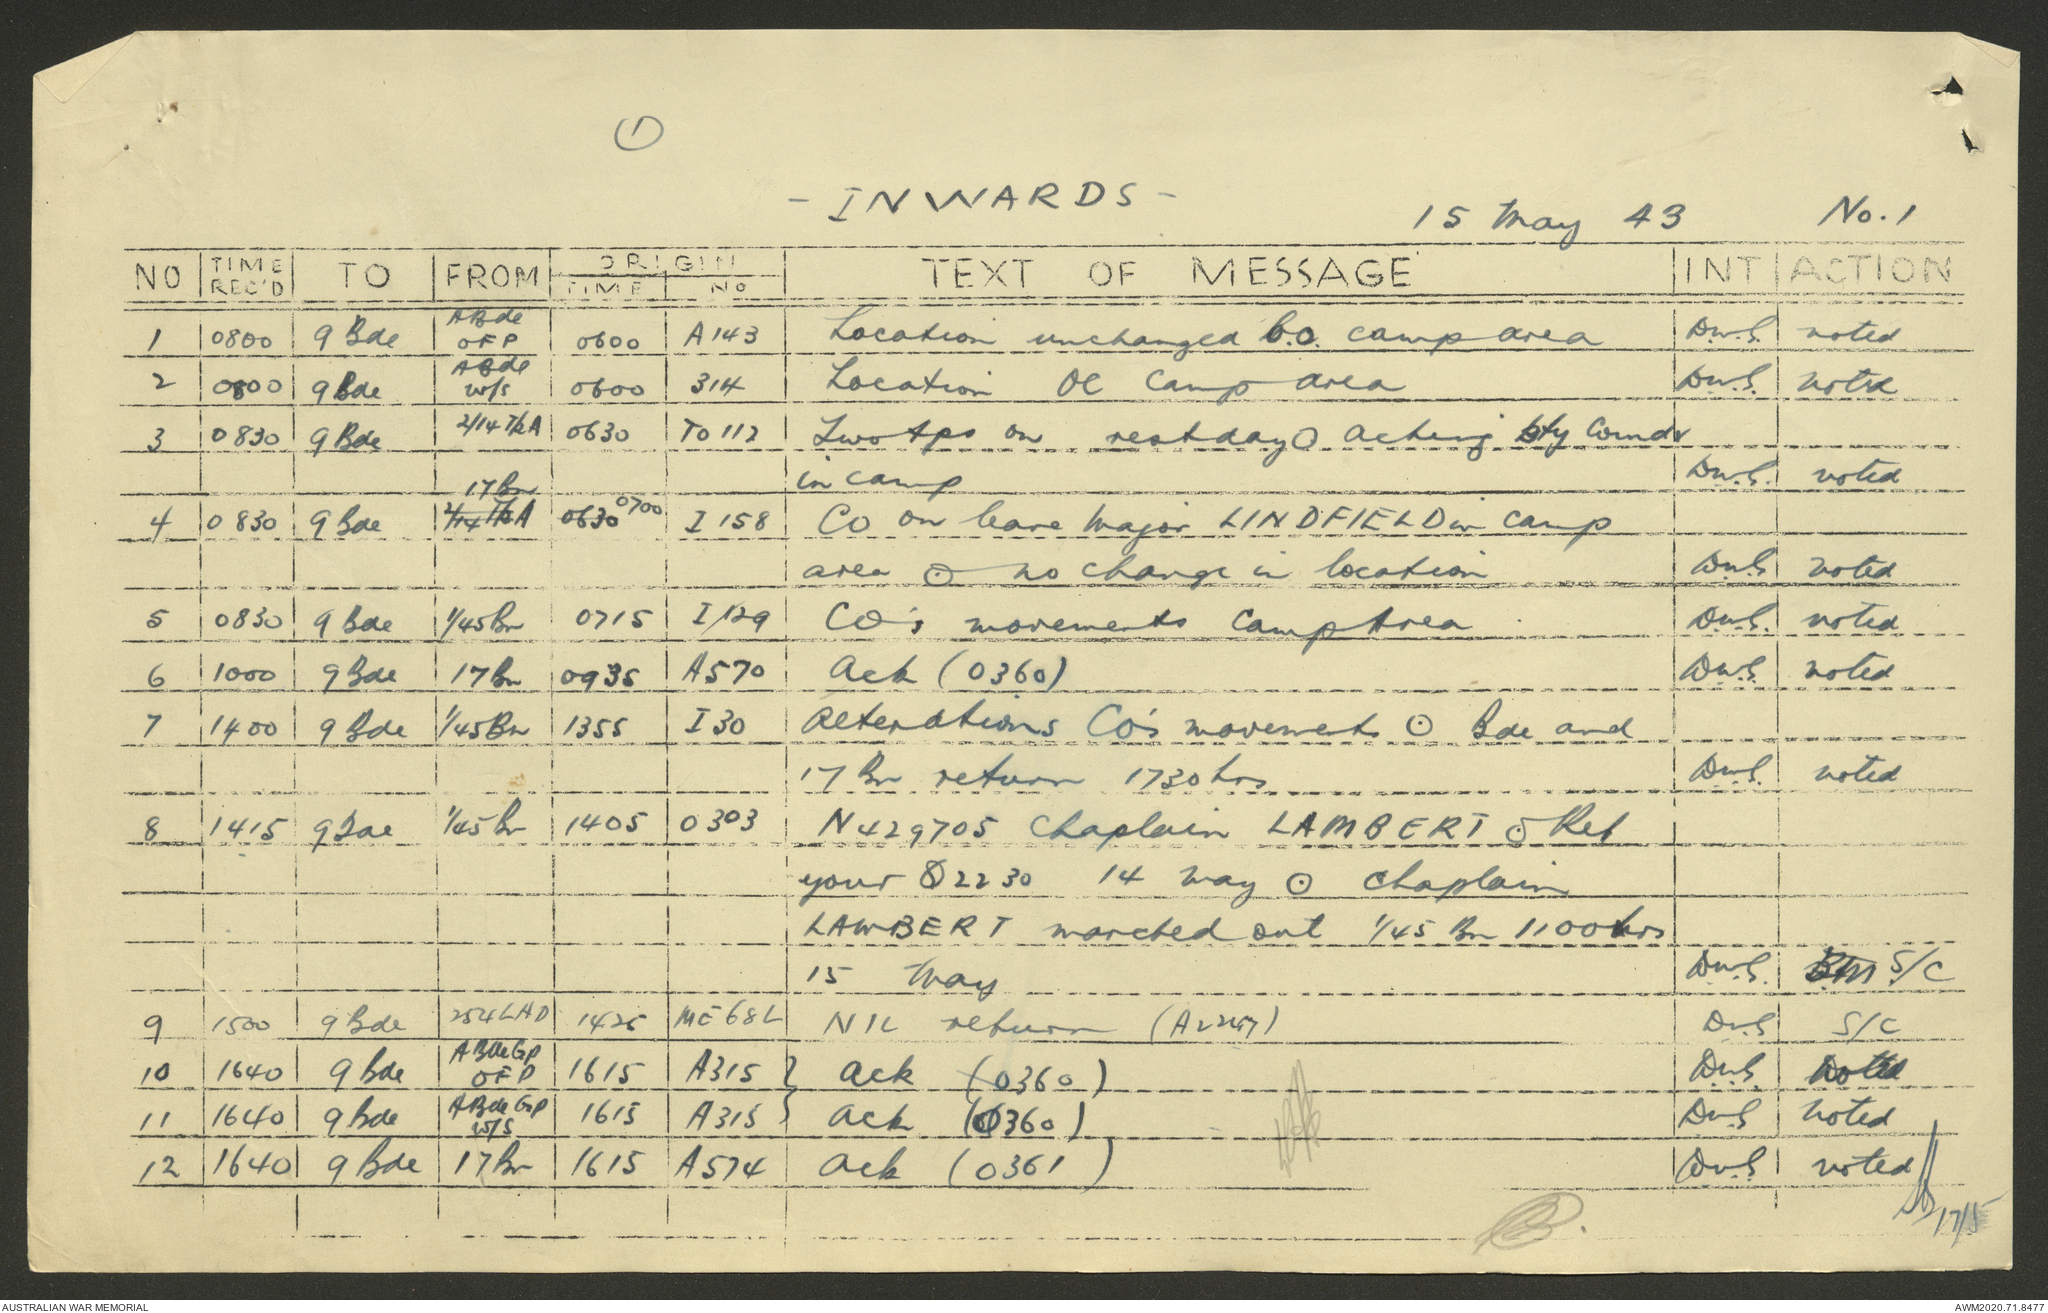 1
- INWARDS -
15 May 43 No. 1
NO TIME REC'D TO FROM ORIGIN TIME No TEXT OF MESSAGE INT ACTION
1 0800 9 Bde A Bde OFP 0600 A143 Location unchanged O.O. camp area D.W.S. noted
2 0800 9 Bde A Bde W/S 0600 314 Location OC Camp area D.W.S. noted
3 0830 9 Bde 2/14 T/kA 0630 TO 112 Two tps on rest day ⊙ acting bty Comdr
in camp D.W.S. noted
4 0830 9 Bde 17 Bn 2/14 T/kA 0630 0700 I 158 CO on leave Major LINDFIELD in camp
area ⊙ no change in location D.W.S. noted
5 0830 9 Bde 1/45 Bn 0715 I/129 CO's movements Camp Area D.W.S. noted
6 1000 9 Bde 17 Bn 0935 A570 Ack (0360) D.W.S. noted
7 1400 9 Bde 1/45 Bn 1355 I 30 Alterations CO's movements ⊙ Bde and
17 Bn return 1730 hrs D.W.S. noted
8 1415 9 Bde 1/45 Bn 1405 0303 N429705 Chaplain LAMBERT ⊙ Ref
your 2230 14 May ⊙ Chaplain
LAMBERT marched out 1/45 Bn 1100 hrs
15 May D.W.S. BM S/C
9 1500 9 Bde 254 LAD 1425 ME 68L NIL return D.W.S S/C
10 1640 9 Bde A Bde Gp OFP 1615 A315 } Ack (0360) D.W.S. Noted
11 1640 9 Bde A Bde Gp W/S 1615 A315 } Ack (0360) D.W.S Noted
12 1640 9 Bde 17 Bn 1615 A574 Ack (0361) D.W.S. noted
17/5
AUSTRALIAN WAR MEMORIAL AWM2020.71.8477